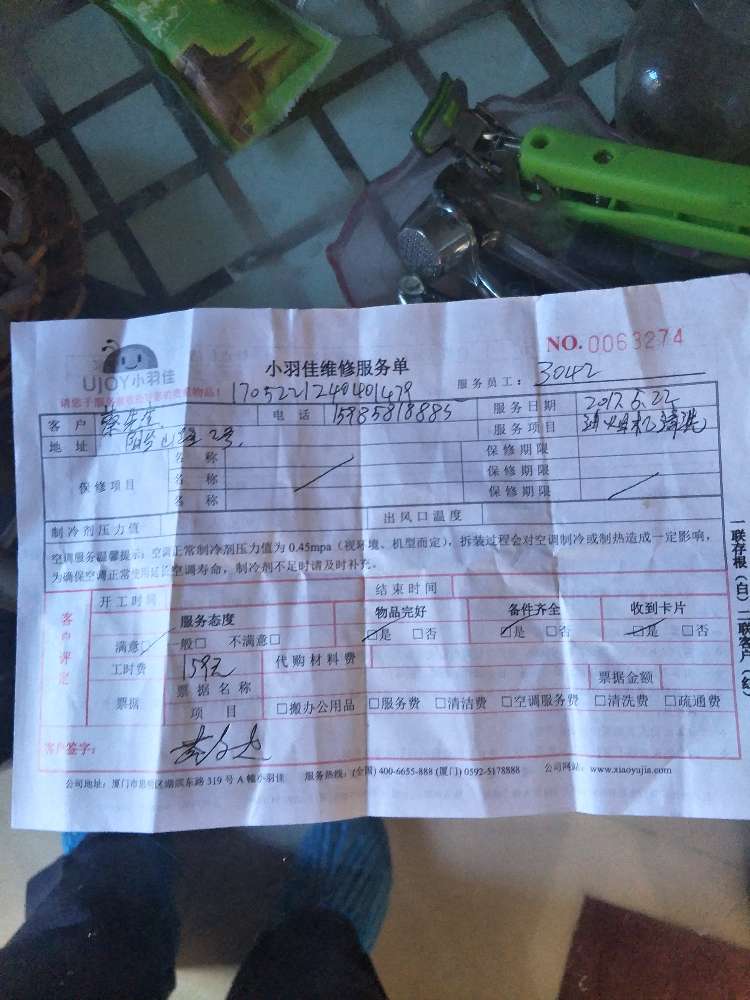 UJOY小羽佳
小羽佳维修服务单
NO.0063274
请您于服务
贵重物品！
1705221240401479
服务员工：3042
客户 先生 电话 15985818885 服务日期 2017.5.22
地址 2号 服务项目 油烟机清洗
保修项目 名称 保修期限
名称 保修期限
名称 保修期限
制冷剂压力值 出风口温度
空调服务温馨提示：空调正常制冷剂压力值为 0.45mpa（视环境、机型而定），拆装过程会对空调制冷或制热造成一定影响，
为确保空调正常使用延长空调寿命，制冷剂不足时请及时补充。
客户评定 开工时间 结束时间
服务态度 物品完好 备件齐全 收到卡片
满意□ 一般□ 不满意□ □是 □否 □是 □否 □是 □否
工时费 159元 代购材料费
票据 票据名称 票据金额
项目 □搬办公用品 □服务费 □清洁费 □空调服务费 □清洗费 □疏通费
客户签字：
公司地址：厦门市思明区湖滨东路 319 号 A 幢小羽佳 服务热线：(全国) 400-6655-888 (厦门) 0592-5178888 公司网站：www.xiaoyujia.com
一联存根（白）二联客户（红）